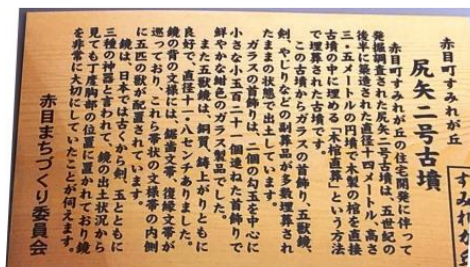 赤目町すみれが丘
尻矢二号古墳
赤目町すみれが丘の住宅開発に伴って
発掘調査された尻矢二号古墳は、五世紀の
後半に築造された直径十四メートル、高さ
三・五メートルの円墳で木製の棺を直接
古墳の中に埋める「木棺直葬」という方法
で埋葬された古墳です。
この古墳からガラスの首飾り、五獣鏡、
剣、やじりなどの副葬品が多数埋葬され
たままの状態で出土しています。
ガラスの首飾りは、二個の勾玉を中心に
小さな小玉百二十一個連ねた首飾りで
鮮やかな紺色のガラス製品でした。
また五獣鏡は、銅質、鋳上がりともに
良好で、直径十一・八センチありました。
鏡の背の文様には、鋸歯文帯、複線文帯が
巡っており、これら帯状の文様帯の内側
に五匹の獣が配置されています。
鏡は、日本では古くから剣、玉とともに
三種の神器と言われて、鏡の出土状況から
見ても丁度胸部の位置に置かれており鏡
を非常に大切にしていたことが伺えます。
赤目まちづくり委員会